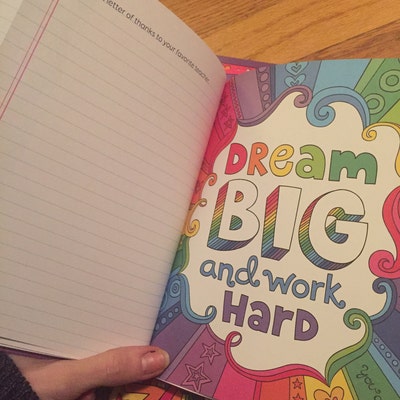 letter of thanks to your favorite teacher
DREAM
BIG
and work
HARD